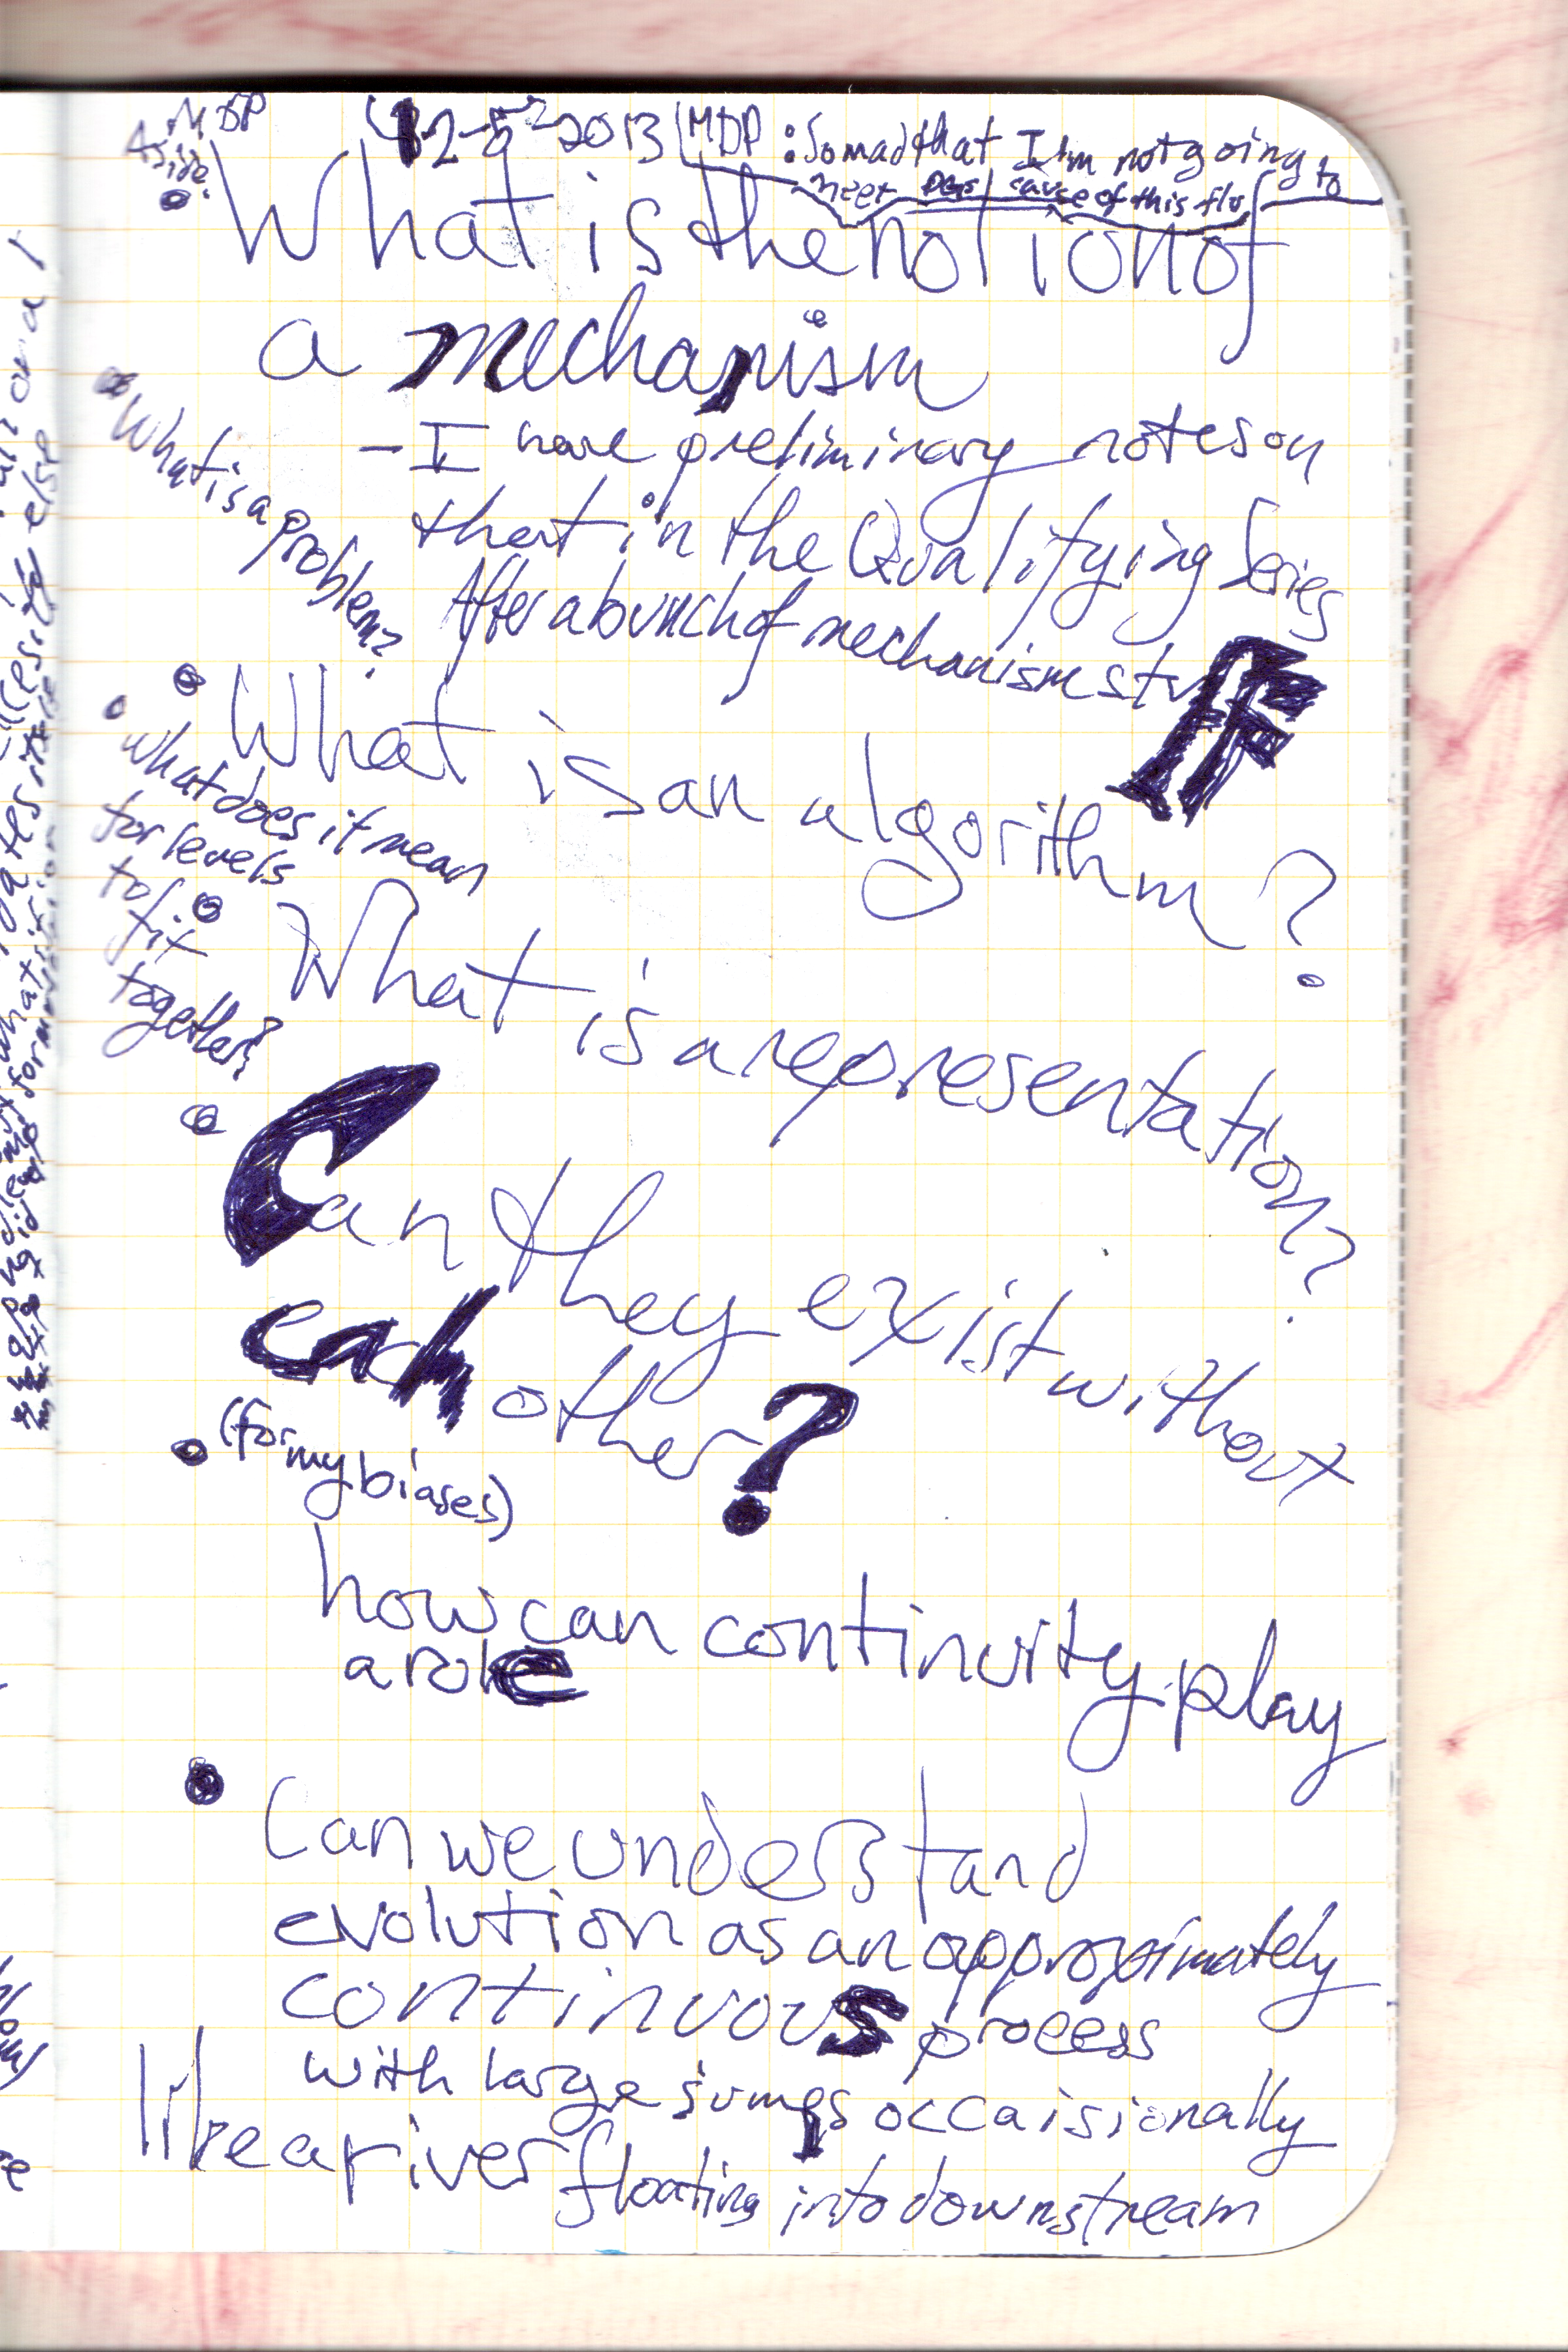 MDP
Aside:
12-5-2013 | MDP: So mad that I'm not going to
meet cause of this flu
What is the notion of
a mechanism
- I have preliminary notes on
that in the Qualifying Series
After a bunch of mechanism stuff
What is a problem?
What is an algorithm?
What does it mean
for levels
to fit
together?
What is a representation?
Can they exist without
each other?
(for my biases)
how can continuity play
a role
Can we understand
evolution as an approximately
continuous process
with large jumps occaisionally
like a river floating into downstream
else